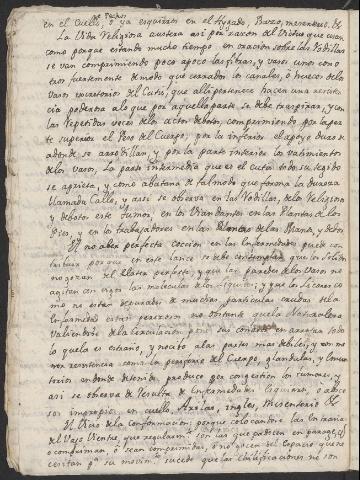 en el Cuello, ò ya esquirros en el Higado, Bazo, mesenterio &
La Vida Religiosa austera asi por razon del Vestuo que usan
como porque estando mucho tiempo en oracion sobre las Rodillas
se van comprimiendo poco apoco las fibras, y vasos unos con o
tros fuertemente de modo que cerrados los canales, ò huecos delos
vasos excretorios del Cutis, que alli pertenece hacen una resisten
cia poderosa alo que por aquella parte se debe traspirar, y con
las repetidas veces del acto deboto, comprimiendo por la par
te superior el Peso del Cuerpo, por la inferior el apoyo duro de
adonde se arrodillan, y por la parte interior los batimientos
de los Vasos. La parte intermedia que es el cutis todo su tegido
se aprieta, y como abatana de tal modo que forma la dureza
llamada Callo, y asi se observa en las Rodillas, delos Religiosos
y debotos este tumor, en los Viandantes en las Plantas de los
Pies, y en los trabajadores en las Palmas de las Manos, y dedos
El no aber perfecta Coccion en las Enfermedades puede con
tribuir porque en este lance se debe contemplar que los Solidos
no gozan del Elater perfecto, y que las paredes delos Vasos no
agitan con vigor las moleculas de los liquidos, y que los licores co
mo no estan depurados de muchas particulas crudas de la
Enfermedad estan perezosos no obstante que la Naturaleza
Valiendose de la Circulacion pone sus conatos en arrojar todo
lo que la es estraño, y nocibo alas partes mas debiles, y con me
nor resistencia como la periferia del Cuerpo, glandulas, y Emunc
torios en donde detenida produce por congestion los tumores, y
asi se observa de resulta de Enfermedades Esquirros, ò abce
sos impropios, en cuello, Axilas, ingles, Mesenterio &
El Vicio de la Conformacion; porque colocandose las Entrañas
del Vajo Vientre, que regularmte. son las que padecen en parages q
ò comprimen, ò sean comprimidas, ò no gocen del Espacio que ne
cesitan pa. su movimto. sucede que las chilificaciones no son